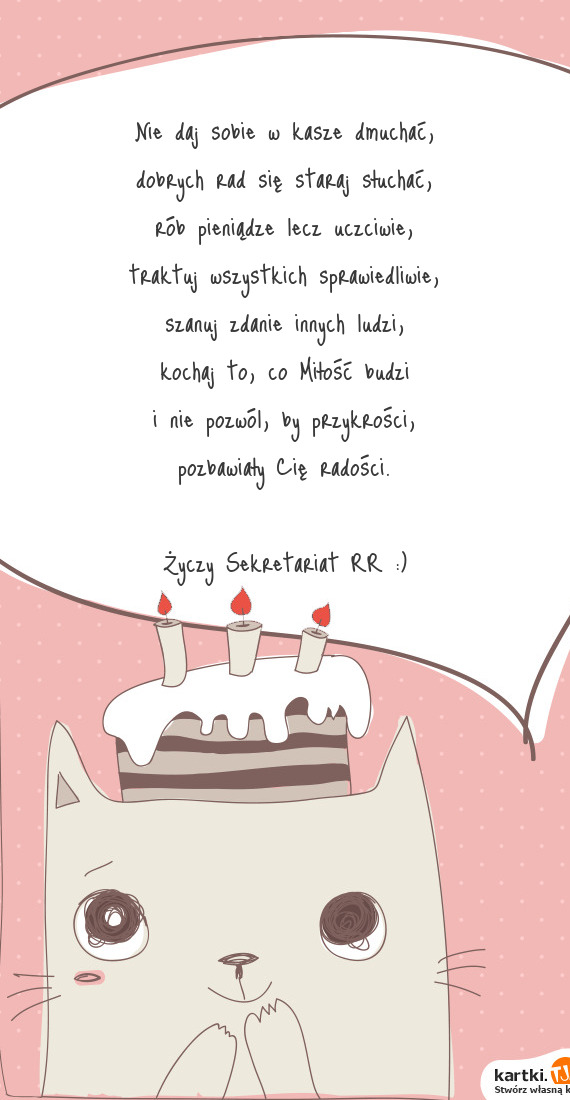 Nie daj sobie w kasze dmuchać,
dobrych rad się staraj słuchać,
rób pieniądze lecz uczciwie,
traktuj wszystkich sprawiedliwie,
szanuj zdanie innych ludzi,
kochaj to, co Miłość budzi
i nie pozwól, by przykrości,
pozbawiały Cię radości.
Życzy Sekretariat RR :)
kartki.TJ
Stwórz własną k